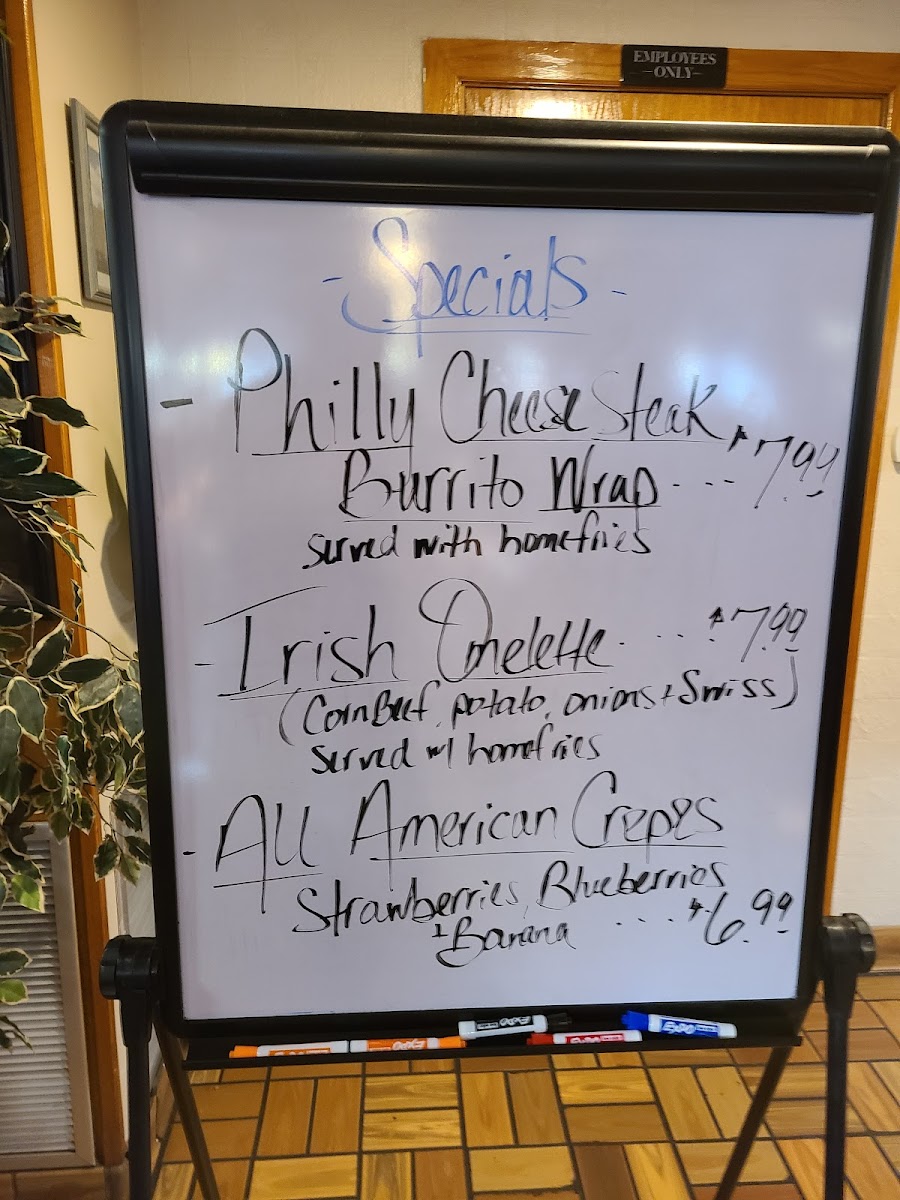 EMPLOYEES
ONLY
- Specials -
- Philly Cheese Steak
Burrito Wrap ... $7.99
served with homefries
- Irish Omelette .... $7.99
(Corn Beef, potato, onions + Swiss)
served w/ homefries
- All American Crepes
Strawberries, Blueberries
+ Banana .... $6.99
EXPO EXPO EXPO EXPO EXPO